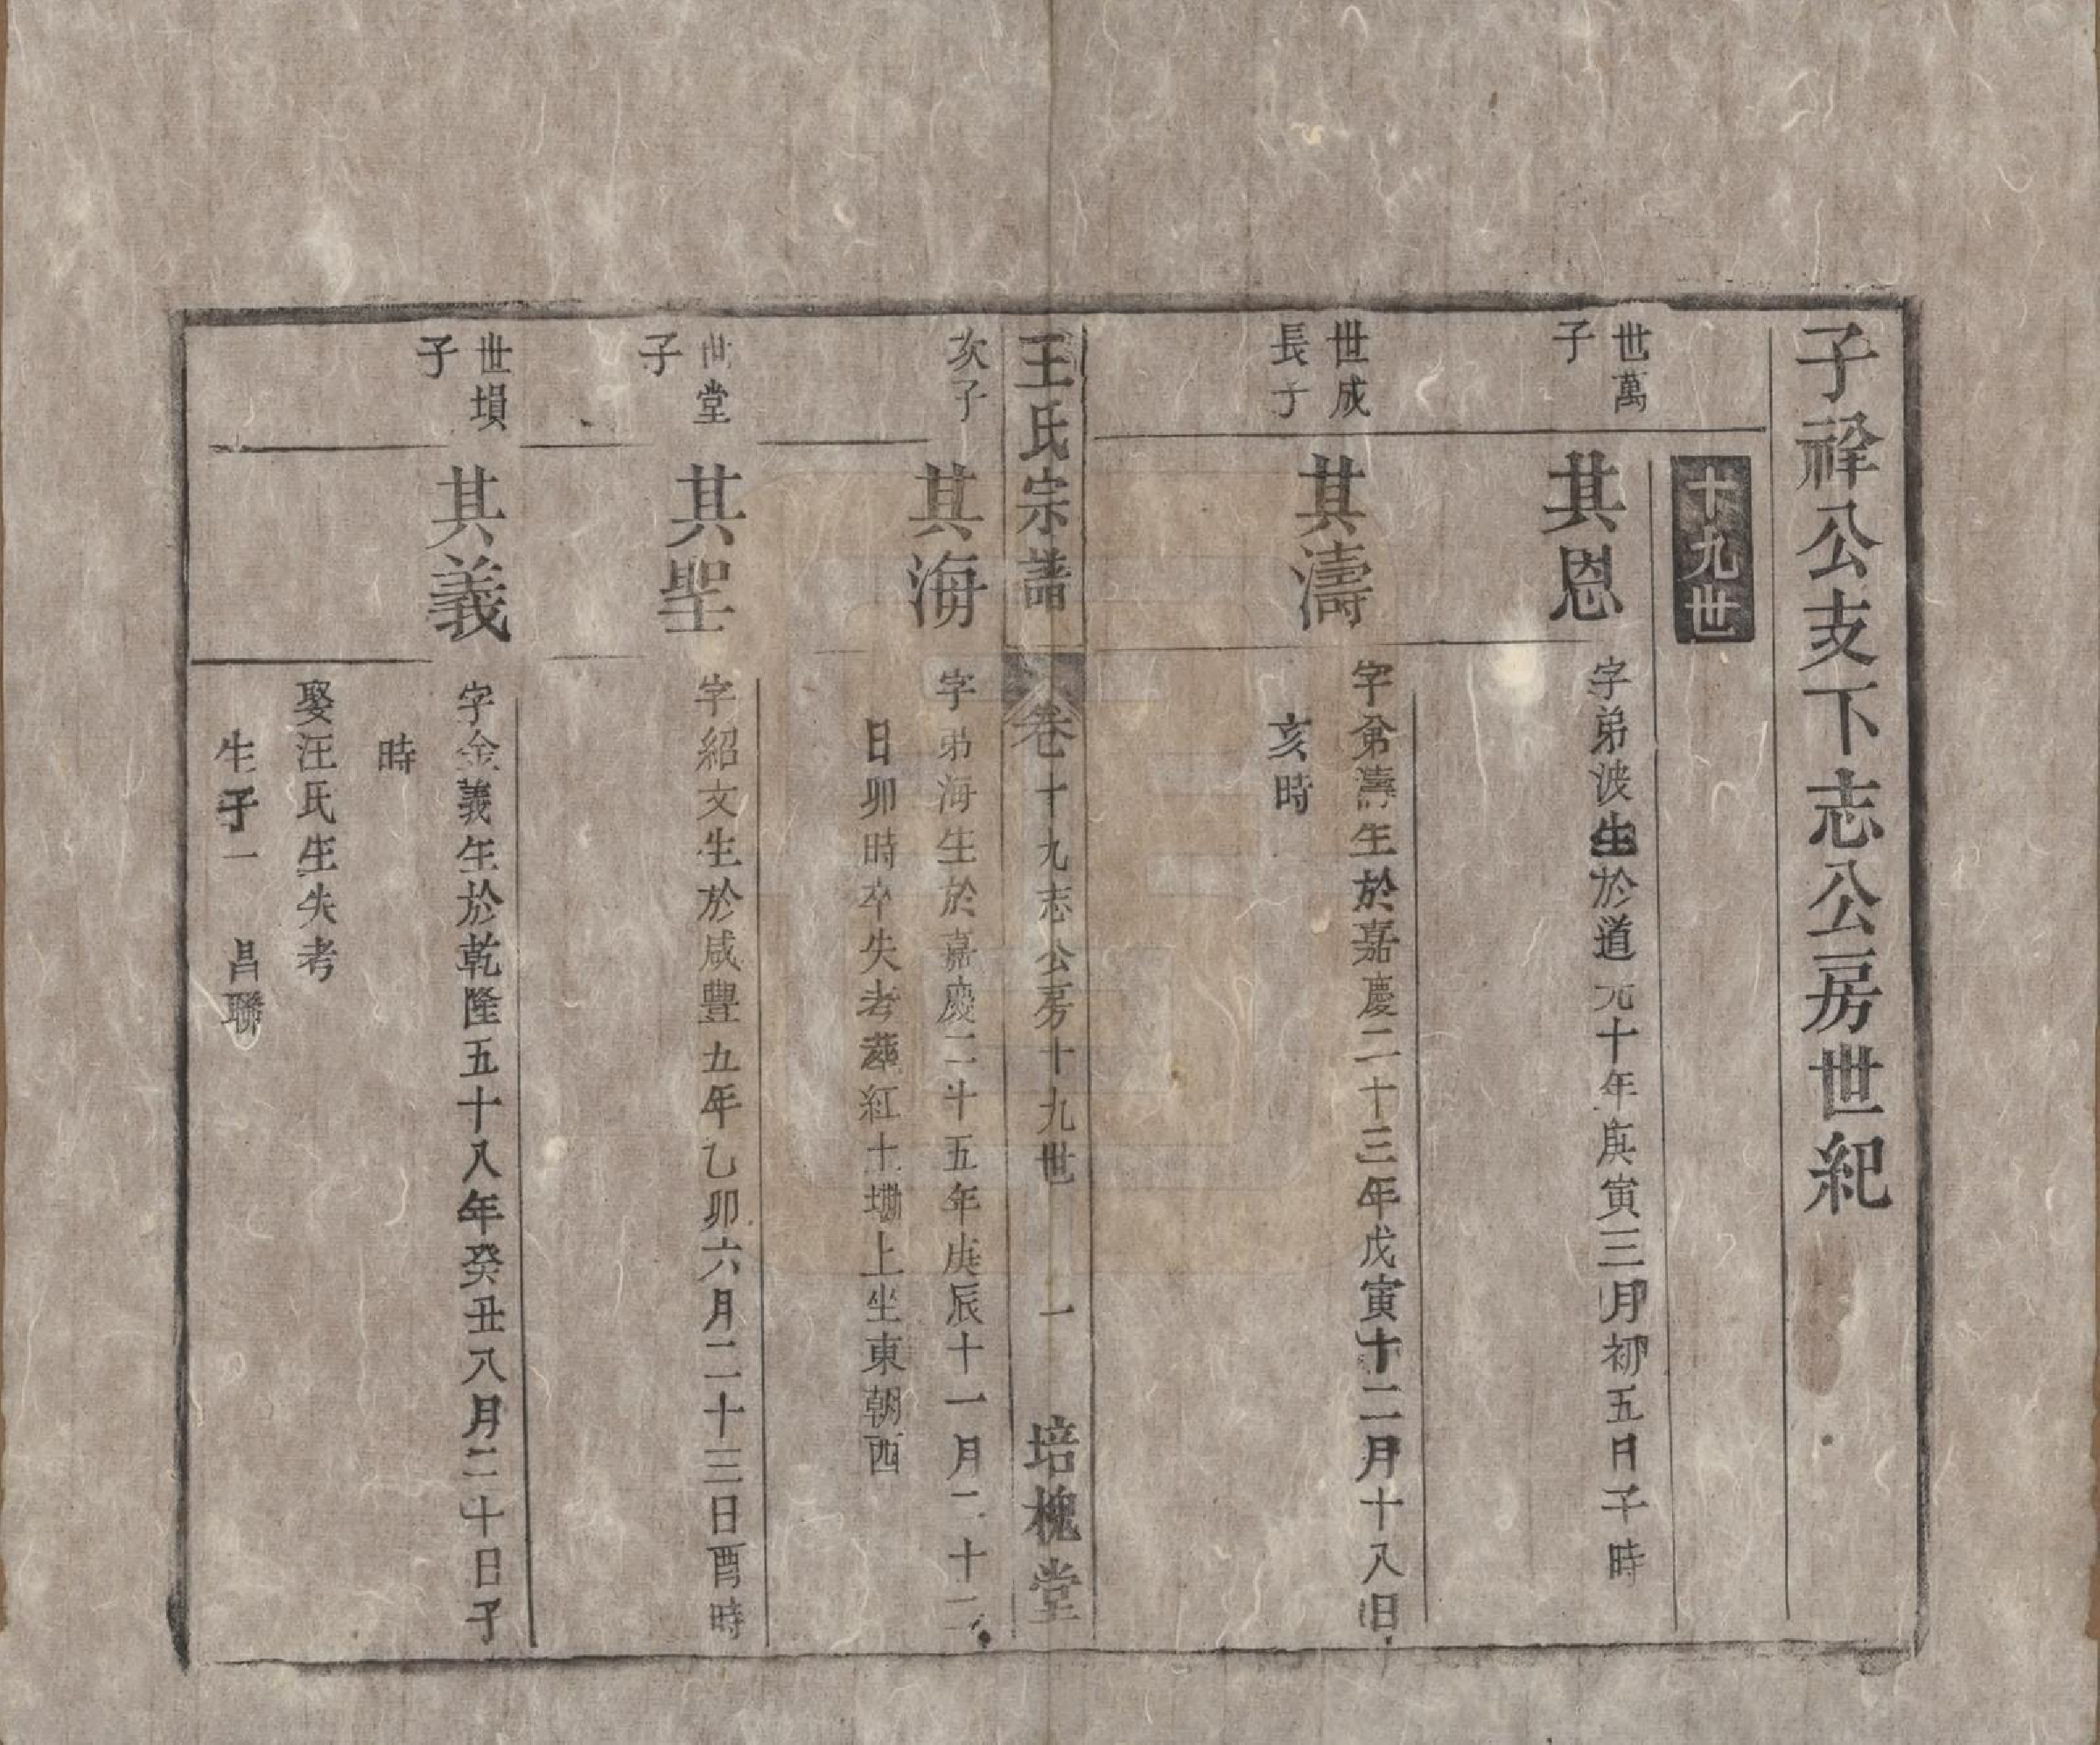 子祥公支下志公房世紀
十九世
世萬
子
其恩
字弟波生於道光十年庚寅三月初五日子時
世成
長子
其濤
字弟濤生於嘉慶二十三年戊寅十二月十八日
亥時
王氏宗譜
卷十九志公房十九世
一
培槐堂
次子
其海
字弟海生於嘉慶二十五年庚辰十一月二十二
日卯時卒失考葬紅土壪上坐東朝西
世堂
子
其聖
字紹文生於咸豐五年乙卯六月二十三日酉時
世塤
子
其義
字金義生於乾隆五十八年癸丑八月二十日子
時
娶汪氏生失考
生子一 昌聯